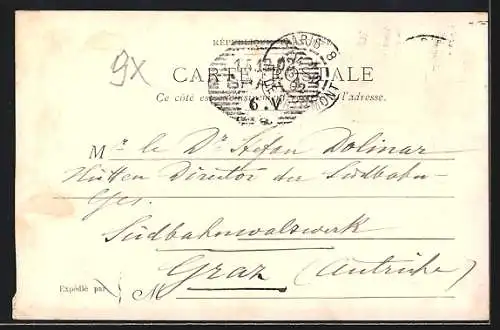 9X
RÉPUBLIQUE
PARIS 8
15.12.02
GRAZ
6.V
CARTE POSTALE
Ce côté est exclusivement réservé à l'adresse.
Mr le Dr Stefan Dolinar
Hütten Director der Südbahn-
Ges.
Südbahnwalzwerk
Graz (Autriche)
Expédié par
M